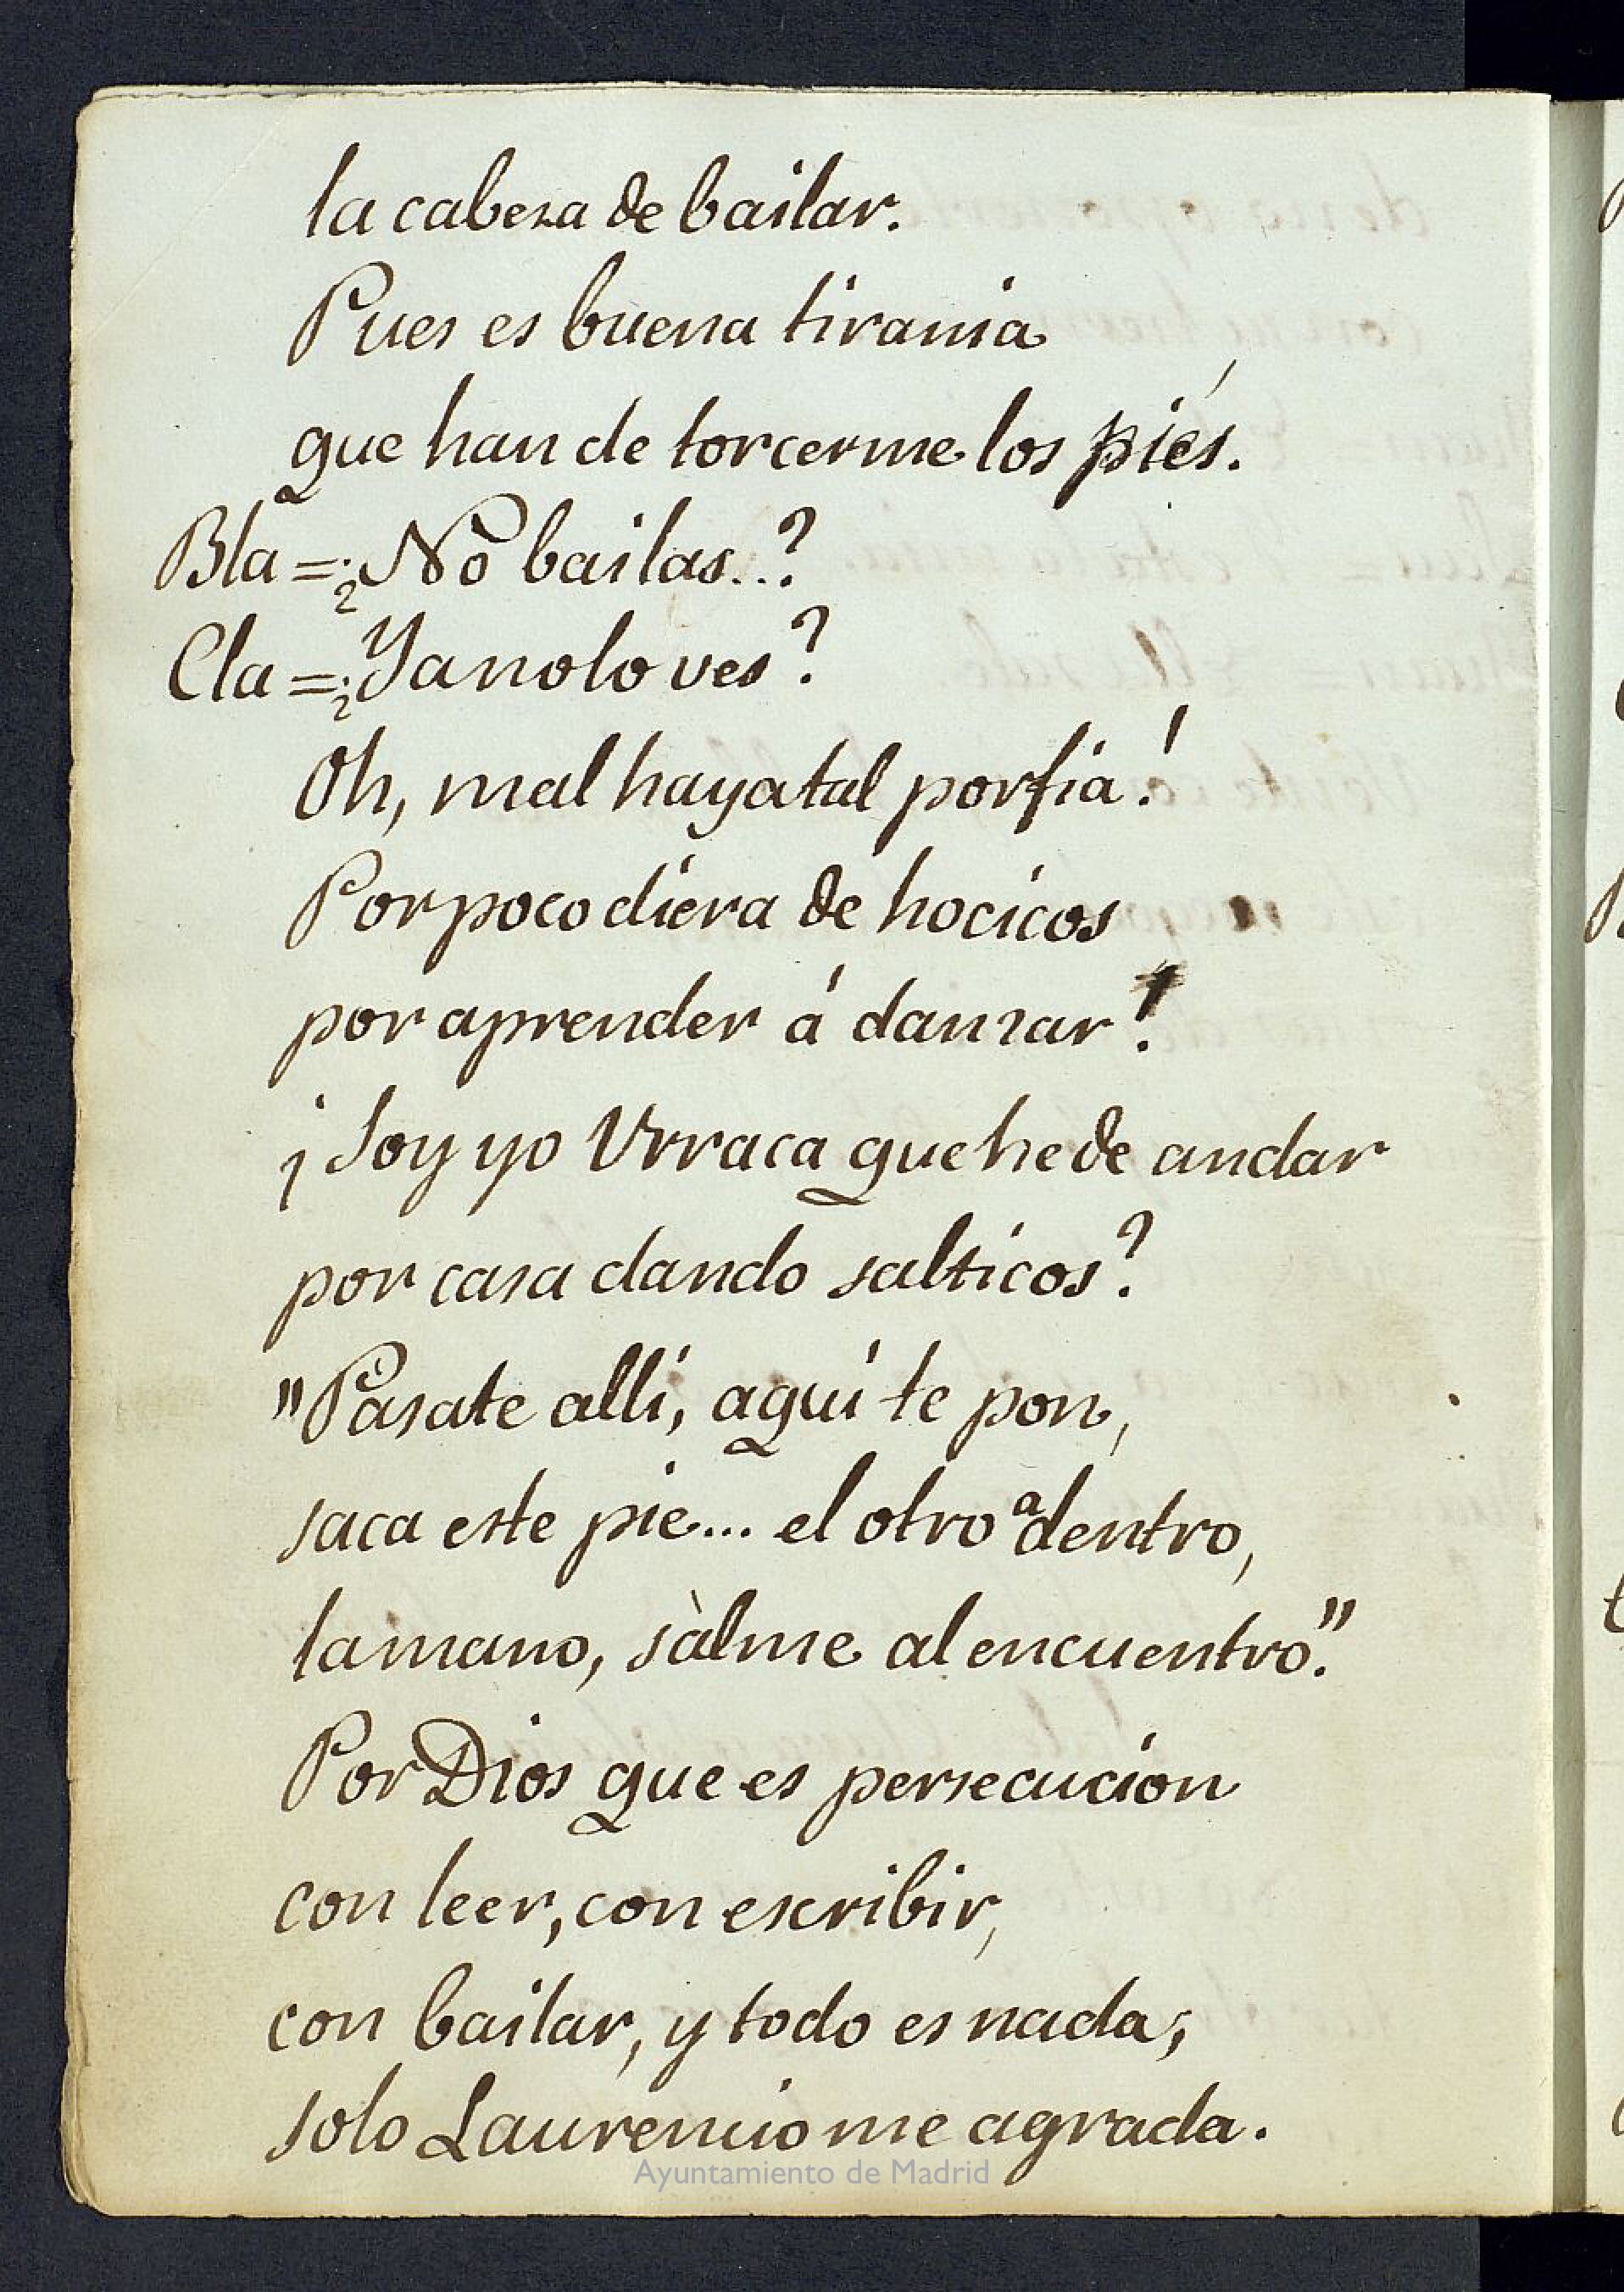 la cabeza de bailar.
Pues es buena tirania
que han de torcerme los piés.
Bla = ¿No bailas...?
Cla = ¿Ya no lo ves?
Oh, mal haya tal porfia!
Por poco diera de hocicos
por aprender á danzar!
¡Soy yo Urraca que he de andar
por casa dando salticos?
"Pàsate allí, aquí te pon,
saca este pie... el otro adentro,
la mano, sàlme al encuentro."
Por Dios que es persecucion
con leer, con escribir,
con bailar, y todo es nada;
solo Laurencio me agrada.
Ayuntamiento de Madrid